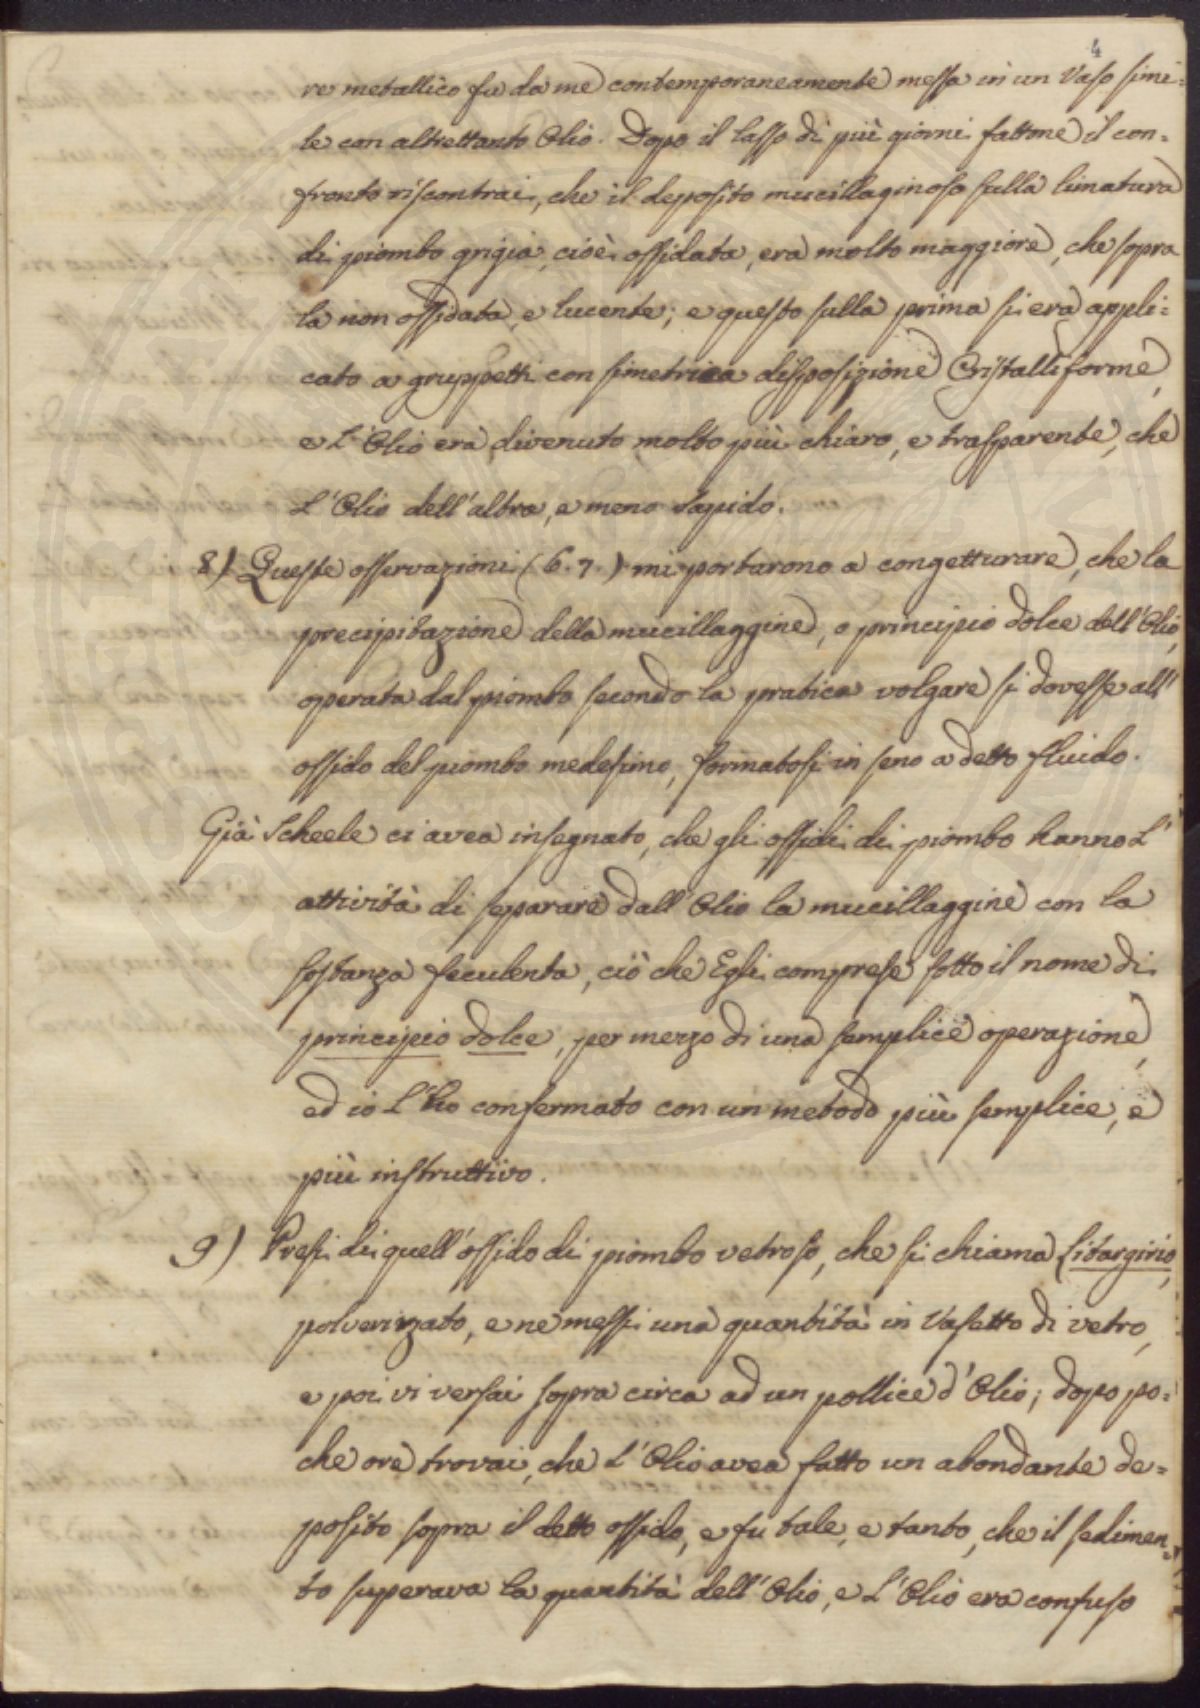 4
re metallico fu da me contemporaneamente messa in un Vaso simi=
le con altrettanto Olio. Dopo il lasso di più giorni fattone il con=
fronto riscontrai, che il deposito mucillaginoso sulla limatura
di piombo grigia, cioè ossidata, era molto maggiore, che sopra
la non ossidata, e lucente; e questo sulla prima si era appli=
cato a gruppetti con simetrica disposizione Cristalliforme,
e l'Olio era divenuto molto più chiaro, e trasparente, che
l'Olio dell'altra, e meno sapido.
8) Queste osservazioni (6. 7.) mi portarono a congetturare, che la
precipitazione della mucillaggine, o principio dolce dell'Olio,
operata dal piombo secondo la pratica volgare si dovesse all'
ossido del piombo medesimo, formatosi in seno a detto fluido.
Già Scheele ci avea insegnato, che gli ossidi di piombo hanno l'
attività di separare dall'Olio la mucillaggine con la
sostanza feculenta, ciò che Egli comprese sotto il nome di
principio dolce, per mezzo di una semplice operazione,
ed io l'ho confermato con un metodo più semplice, e
più instruttivo.
9) Presi di quell'ossido di piombo vetroso, che si chiama Litargirio,
polverizzato, e ne messi una quantità in Vasetto di vetro,
e poi vi versai sopra circa ad un pollice d'Olio; dopo po=
che ore trovai, che l'Olio avea fatto un abondante de=
posito sopra il detto ossido, e fu tale, e tanto, che il sedimen=
to superava la quantità dell'Olio, e l'Olio era confuso